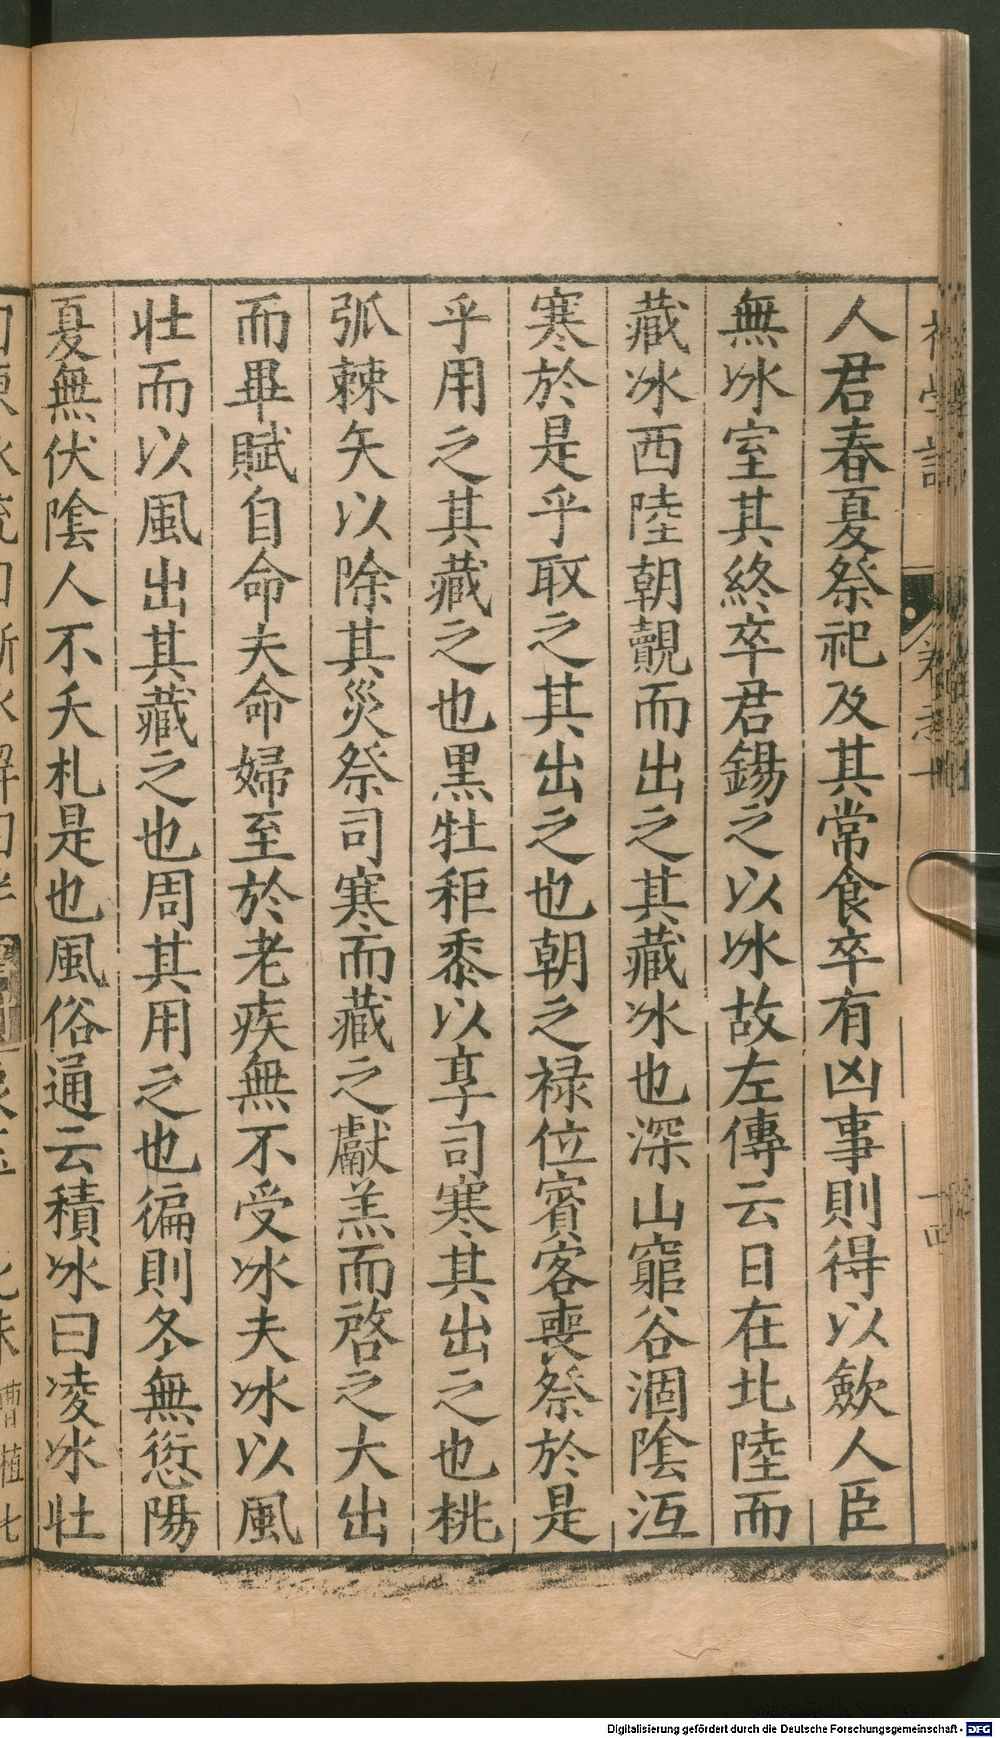 人君春夏祭祀及其常食卒有凶事則得以歛人臣
無冰室其終卒君錫之以冰故左傳云日在北陸而
藏冰西陸朝覿而出之其藏冰也深山窮谷涸陰沍
寒於是乎取之其出之也朝之禄位賓客喪祭於是
乎用之其藏之也黒牡秬黍以享司寒其出之也桃
弧棘矢以除其災祭司寒而藏之獻羔而啓之大出
而畢賦自命夫命婦至於老疾無不受冰夫冰以風
壮而以風出其藏之也周其用之也徧則冬無愆陽
夏無伏陰人不夭札是也風俗通云積冰曰凌冰壮
Digitalisierung gefördert durch die Deutsche Forschungsgemeinschaft - DFG